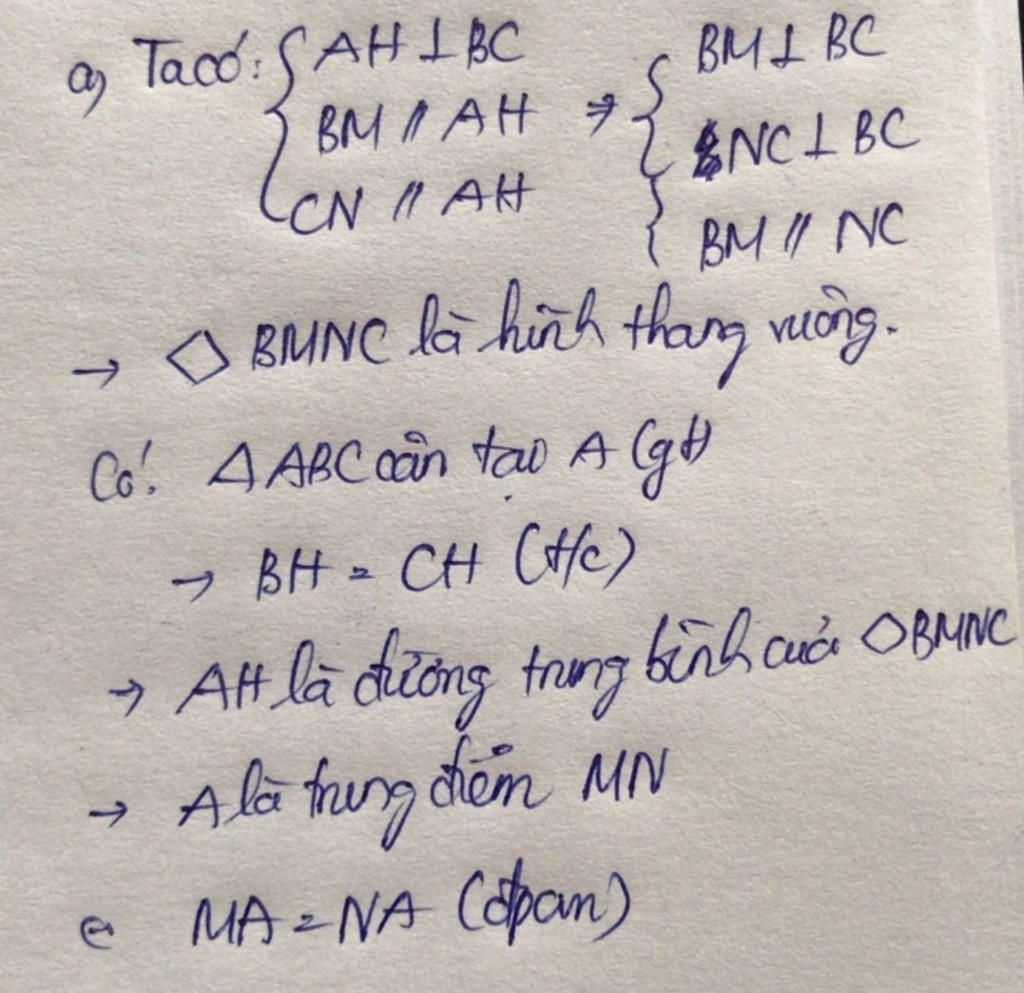 a) Ta có: { AH ⊥ BC
BM // AH
CN // AH
⇒ { BM ⊥ BC
NC ⊥ BC
BM // NC
→ ◇ BMNC là hình thang vuông.
Có: Δ ABC cân tại A (gt)
→ BH = CH (t/c)
→ AH là đường trung bình của ◇ BMNC
→ A là trung điểm MN
MA = NA (đpcm)